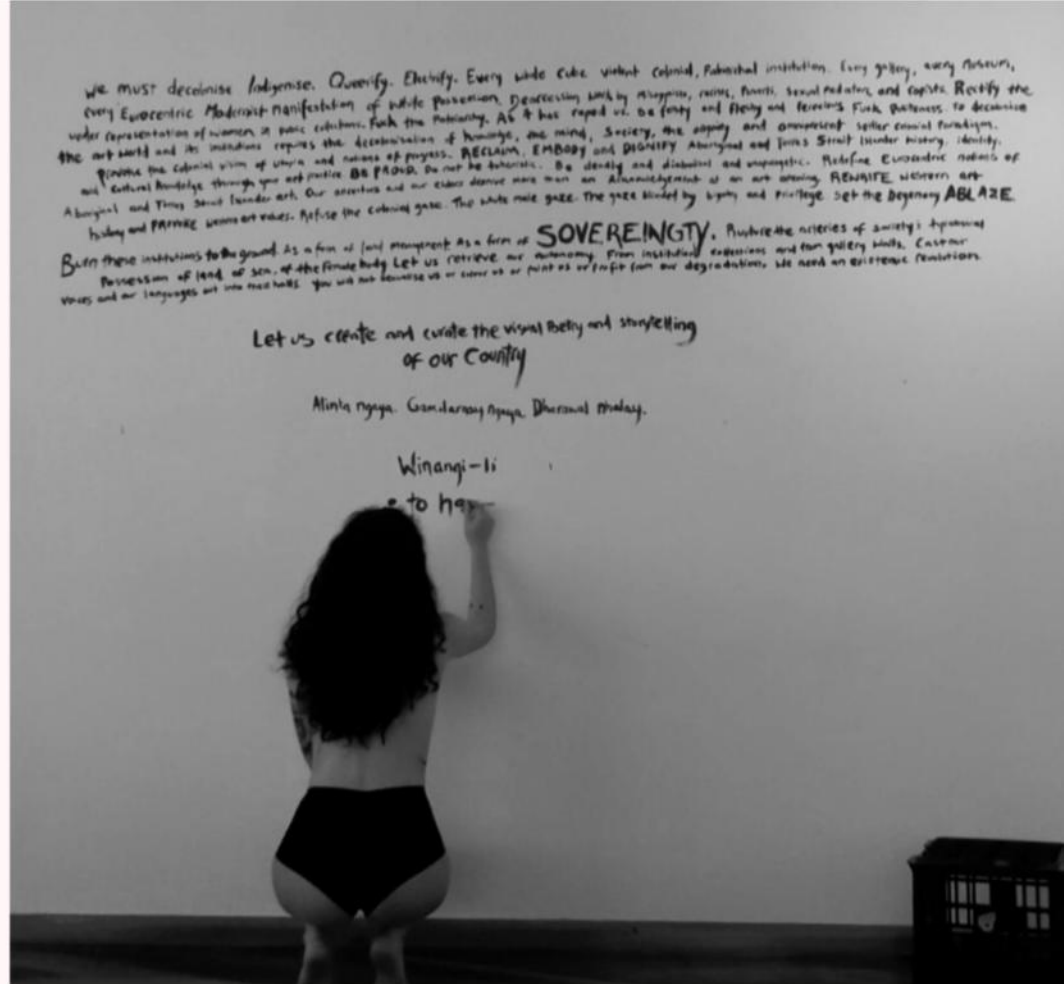 We must decolonise Indigenise. Queerify. Electrify. Every white cube violent colonial, Patriarchal institution. Every gallery, every Museum,
every Eurocentric Modernist Manifestation of white Possession. Deaccession work by Misogynists, racists, sexual Predators, and rapists. Rectify the
under representation of women in public collections. Fuck the Patriarchy. As it has raped us. Be and Fleshy and ferocious Fuck Politeness. To decolonise
the art world and its institutions requires the decolonisation of knowledge, the mind, Society, the and omnipresent settler colonial Paradigm.
the colonial vision of utopia and notions of progress. RECLAIM, EMBODY and DIGNIFY Aboriginal and Torres Strait Islander history, identity,
and Cultural Knowledge through your art practice. BE PROUD. Do not be tokenistic. Be deadly and diabolical and unapologetic. Redefine Eurocentric notions of
Aboriginal and Torres Strait Islander art. Our ancestors and our elders deserve more than an Acknowledgement at an art opening. REWRITE western art
history and PROVOKE western art values. Refuse the colonial gaze. The white male gaze. The gaze blinded by bigotry and Privilege set the Begemony ABLAZE.
Burn these institutions to the ground As a form of land management As a form of SOVEREINGTY. the arteries of society's tyrannical
Possession of land of sea, of the Female body Let us retrieve our autonomy. From institutional collections and from gallery walls. Cast our
voices and our languages out into these halls You will not us or us or paint us or Profit from our degradation. We need an existence revolution
Let us create and curate the visual Poetry and storytelling
of our Country
ngaya. ngaya Dharawal
Winangi-li
to ha